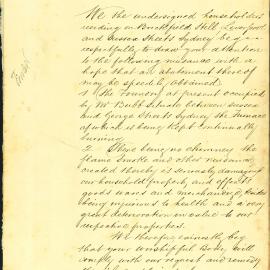 We the undersigned householders
residing on Brickfield Hill, Liverpool
and Sussex Streets Sydney beg
respectfully to draw your attention
to the following nuisance with a
hope that an abatement thereof
may be speedily obtained
1 the Foundry at present occupied
by Mr Bubb situate between Sussex
and George Streets Sydney the Furnace
of which is being kept continually
burning
2 There being no chimney the
flame smoke and other nuisance
created thereby is seriously damaging
our household property and effects
goods wares and merchandize besides
being injurious to health and a very
great deterioration in value to our
respective properties.
We therefore earnestly beg
that your worshipful Body will
comply with our request and remedy